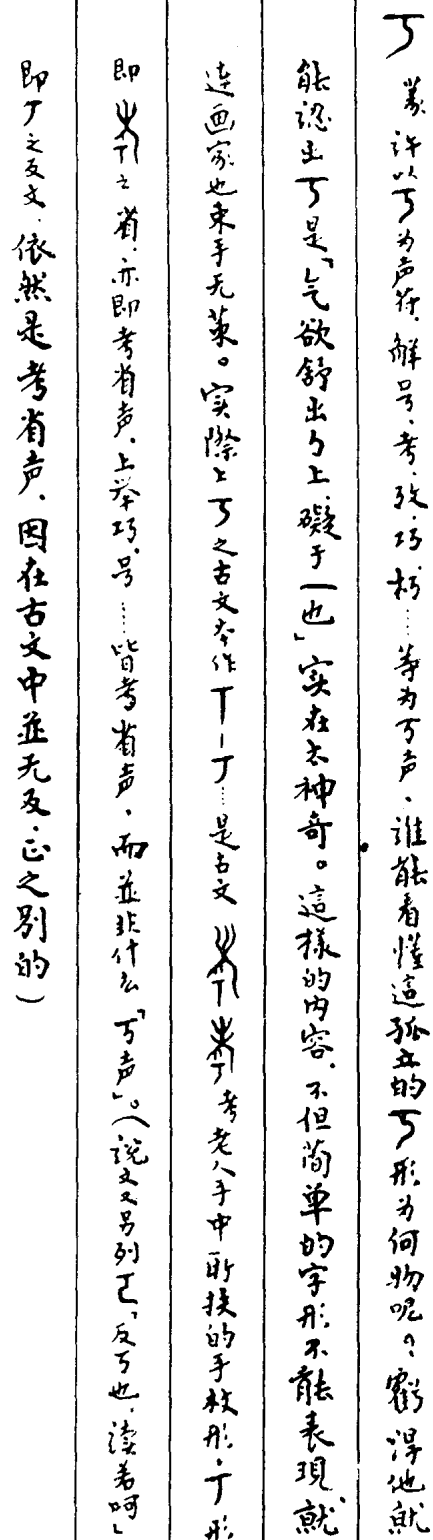 丂 篆 许以丂为声符，解号、考、攷、巧、朽……等为丂声，谁能看懂這孤立的丂形为何物呢？虧得他就
能認出丂是「气欲舒出ㄅ上礙于一也」实在太神奇。這樣的内容，不但简单的字形不能表現，就
连画家也束手无策。实際上丂之古文本作丅丨丁……是古文 考老人手中所扶的手杖形，丁形
即 之省，亦即考省声，上举巧、号……皆考省声，而並非什么「丂声」。（説文又另列𠀀「反丂也，读若呵」
即丁之反文，依然是考省声，因在古文中並无反、正之别的）